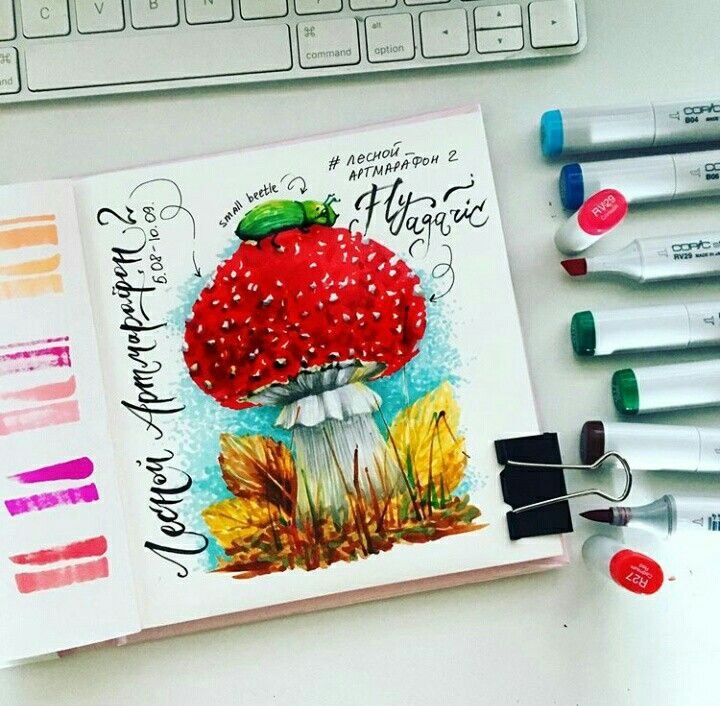 C
V
B
N
M
command
alt
option
# ЛЕСНОЙ
АРТМАРАФОН 2
small beetle
Fly
agaric
Лесной Артмарафон 2
5.08-10.09.
COPIC
B04
B06
RV29
COPIC
RV29
R27